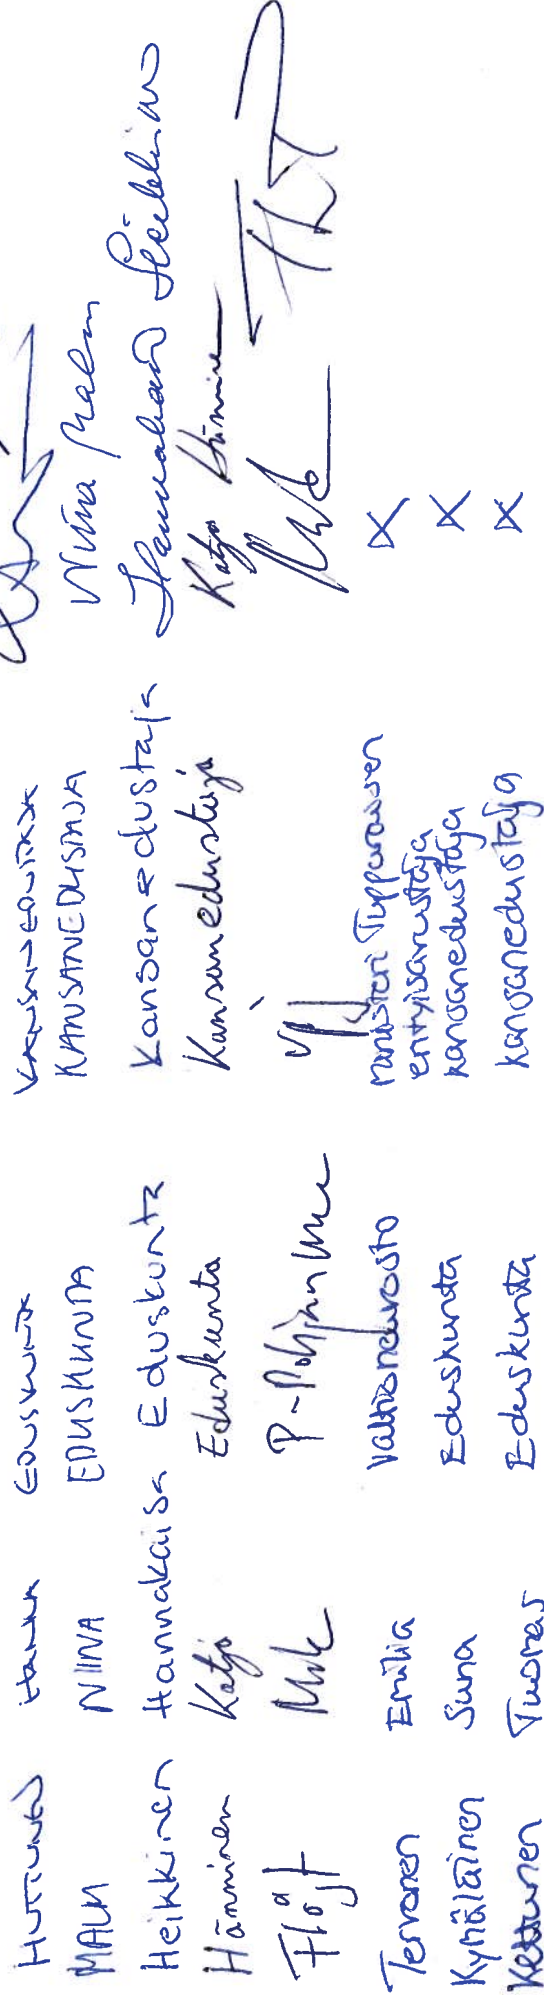 HUTTUNEN HANNA EDUSKUNTA KANSANEDUSTAJA
MALM NIINA EDUSKUNTA KANSANEDUSTAJA Niina Malm
Heikkinen Hannakaisa Eduskunta Kansanedustaja Hannakaisa Heikkinen
Hänninen Katja Eduskunta Kansanedustaja Katja Hänninen
Flöjt Mik P-Pohjanmaa
Tervonen Emilia Valtioneuvosto ministeri Tuppuraisen
erityisavustaja X
Kymäläinen Suna Eduskunta kansanedustaja X
Kettunen Tuomas Eduskunta kansanedustaja X